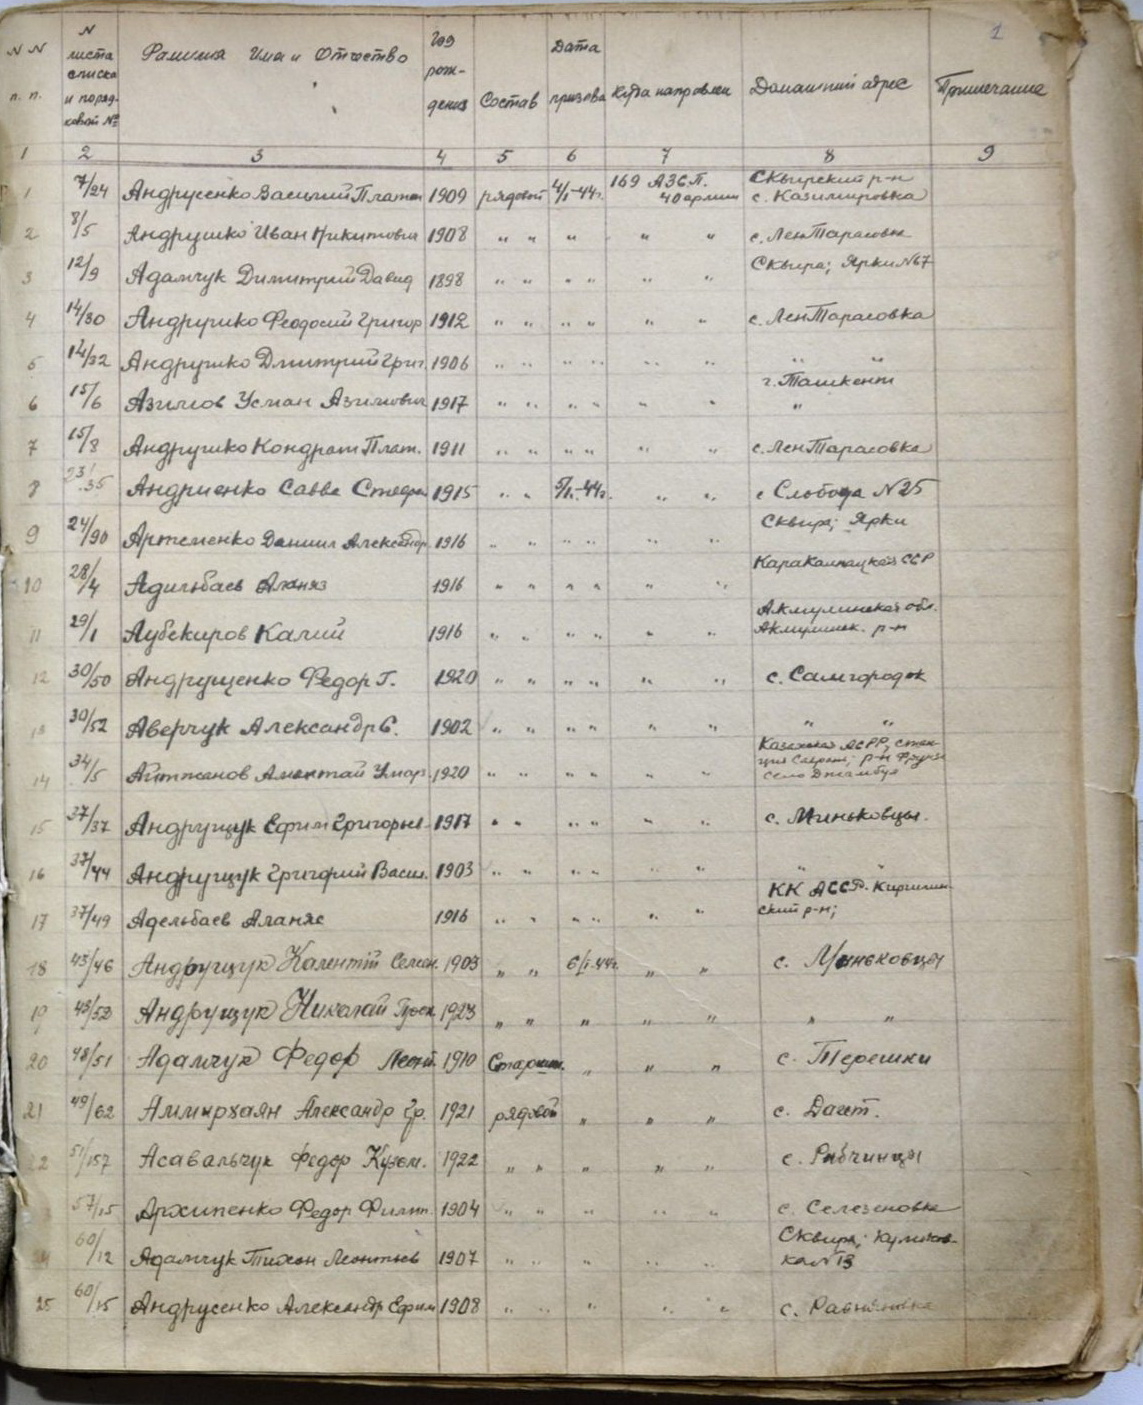 1
N N п. п. | N листа списка и поряд- ковой № | Фамилия Имя и Отчество | Год рож- дения | Состав | Дата призыва | Куда направлен | Домашний адрес | Примечание
1 | 2 | 3 | 4 | 5 | 6 | 7 | 8 | 9
1 | 7/24 | Андрусенко Василий Платон | 1909 | рядовой | 4/I-44г. | 169 АЗСП. 40 армии | Сквирский р-н с. Казимировка
2 | 8/5 | Андрушко Иван Никитович | 1908 | " " | " | " " | с. ЛенТарасовка
3 | 12/9 | Адамчук Димитрий Давид | 1898 | " " | " " | " " | Сквира; Ярки N67
4 | 14/30 | Андрушко Феодосий Григор | 1912 | " " | " " | " " | с. ЛенТарасовка
5 | 14/32 | Андрушко Дмитрий Григ. | 1906 | " " | " " | " " | " "
6 | 15/6 | Азимов Усман Азимович | 1917 | " " | " " | " " | г. Ташкент "
7 | 15/8 | Андрушко Кондрат Плат. | 1911 | " " | " " | " " | с. ЛенТарасовка
8 | 23/35 | Андриенко Савва Стефан | 1915 | " " | 5/I-44г. | " " | с Слобода N25
9 | 24/90 | Артеменко Даниил Александр | 1916 | " " | " " | " " | Сквира; Ярки
10 | 28/4 | Адильбаев Аланяз | 1916 | " " | " " | " " | КараКалпацкая ССР
11 | 29/1 | Аубекиров Калий | 1916 | " " | " " | " " | Акмулинская обл. Акмулинск. р-н
12 | 30/50 | Андрущенко Федор Г. | 1920 | " " | " " | " " | с. Самгородок
13 | 30/52 | Аверчук Александр С. | 1902 | " " | " " | " " | " "
14 | 34/5 | Айтжанов Аментай Умар. | 1920 | " " | " " | " " | Казахская АСРР, стан- ция р-н Фрунзе село Джамбул
15 | 37/37 | Андрущук Ефим Григорьев | 1917 | " " | " " | " " | с. Миньковцы.
16 | 37/44 | Андрущук Григорий Васил. | 1903 | " " | " " | " " | " "
17 | 37/49 | Адельбаев Аланяс | 1916 | " " | " " | " " | КК АССР. Киргизин- ский р-н;
18 | 43/46 | Андрущук Калентій Семен. | 1903 | " " | 6/I.44г. | " " | с. Миньковцы
19 | 43/52 | Андрущук Николай | 1923 | " " | " | " " | " "
20 | 48/51 | Адамчук Федор Леонт. | 1910 | Старшин. | " | " " | с. Терешки
21 | 49/62 | Аммирхаян Александр Гр. | 1921 | рядовой | " | " " | с. Дагест.
22 | 51/157 | Асавальчук Федор Кузьм. | 1922 | " " | " | " " | с. Рибчинцы
57/15 | Архипенко Федор Филип. | 1904 | " " | " | " " | с. Селезеновка
24 | 60/12 | Адамчук Тихон Леонтьев | 1907 | " " | " | " " | Сквира; Куликов- ка N13
25 | 60/15 | Андрусенко Александр Ефим | 1908 | " " | " | " " | с.